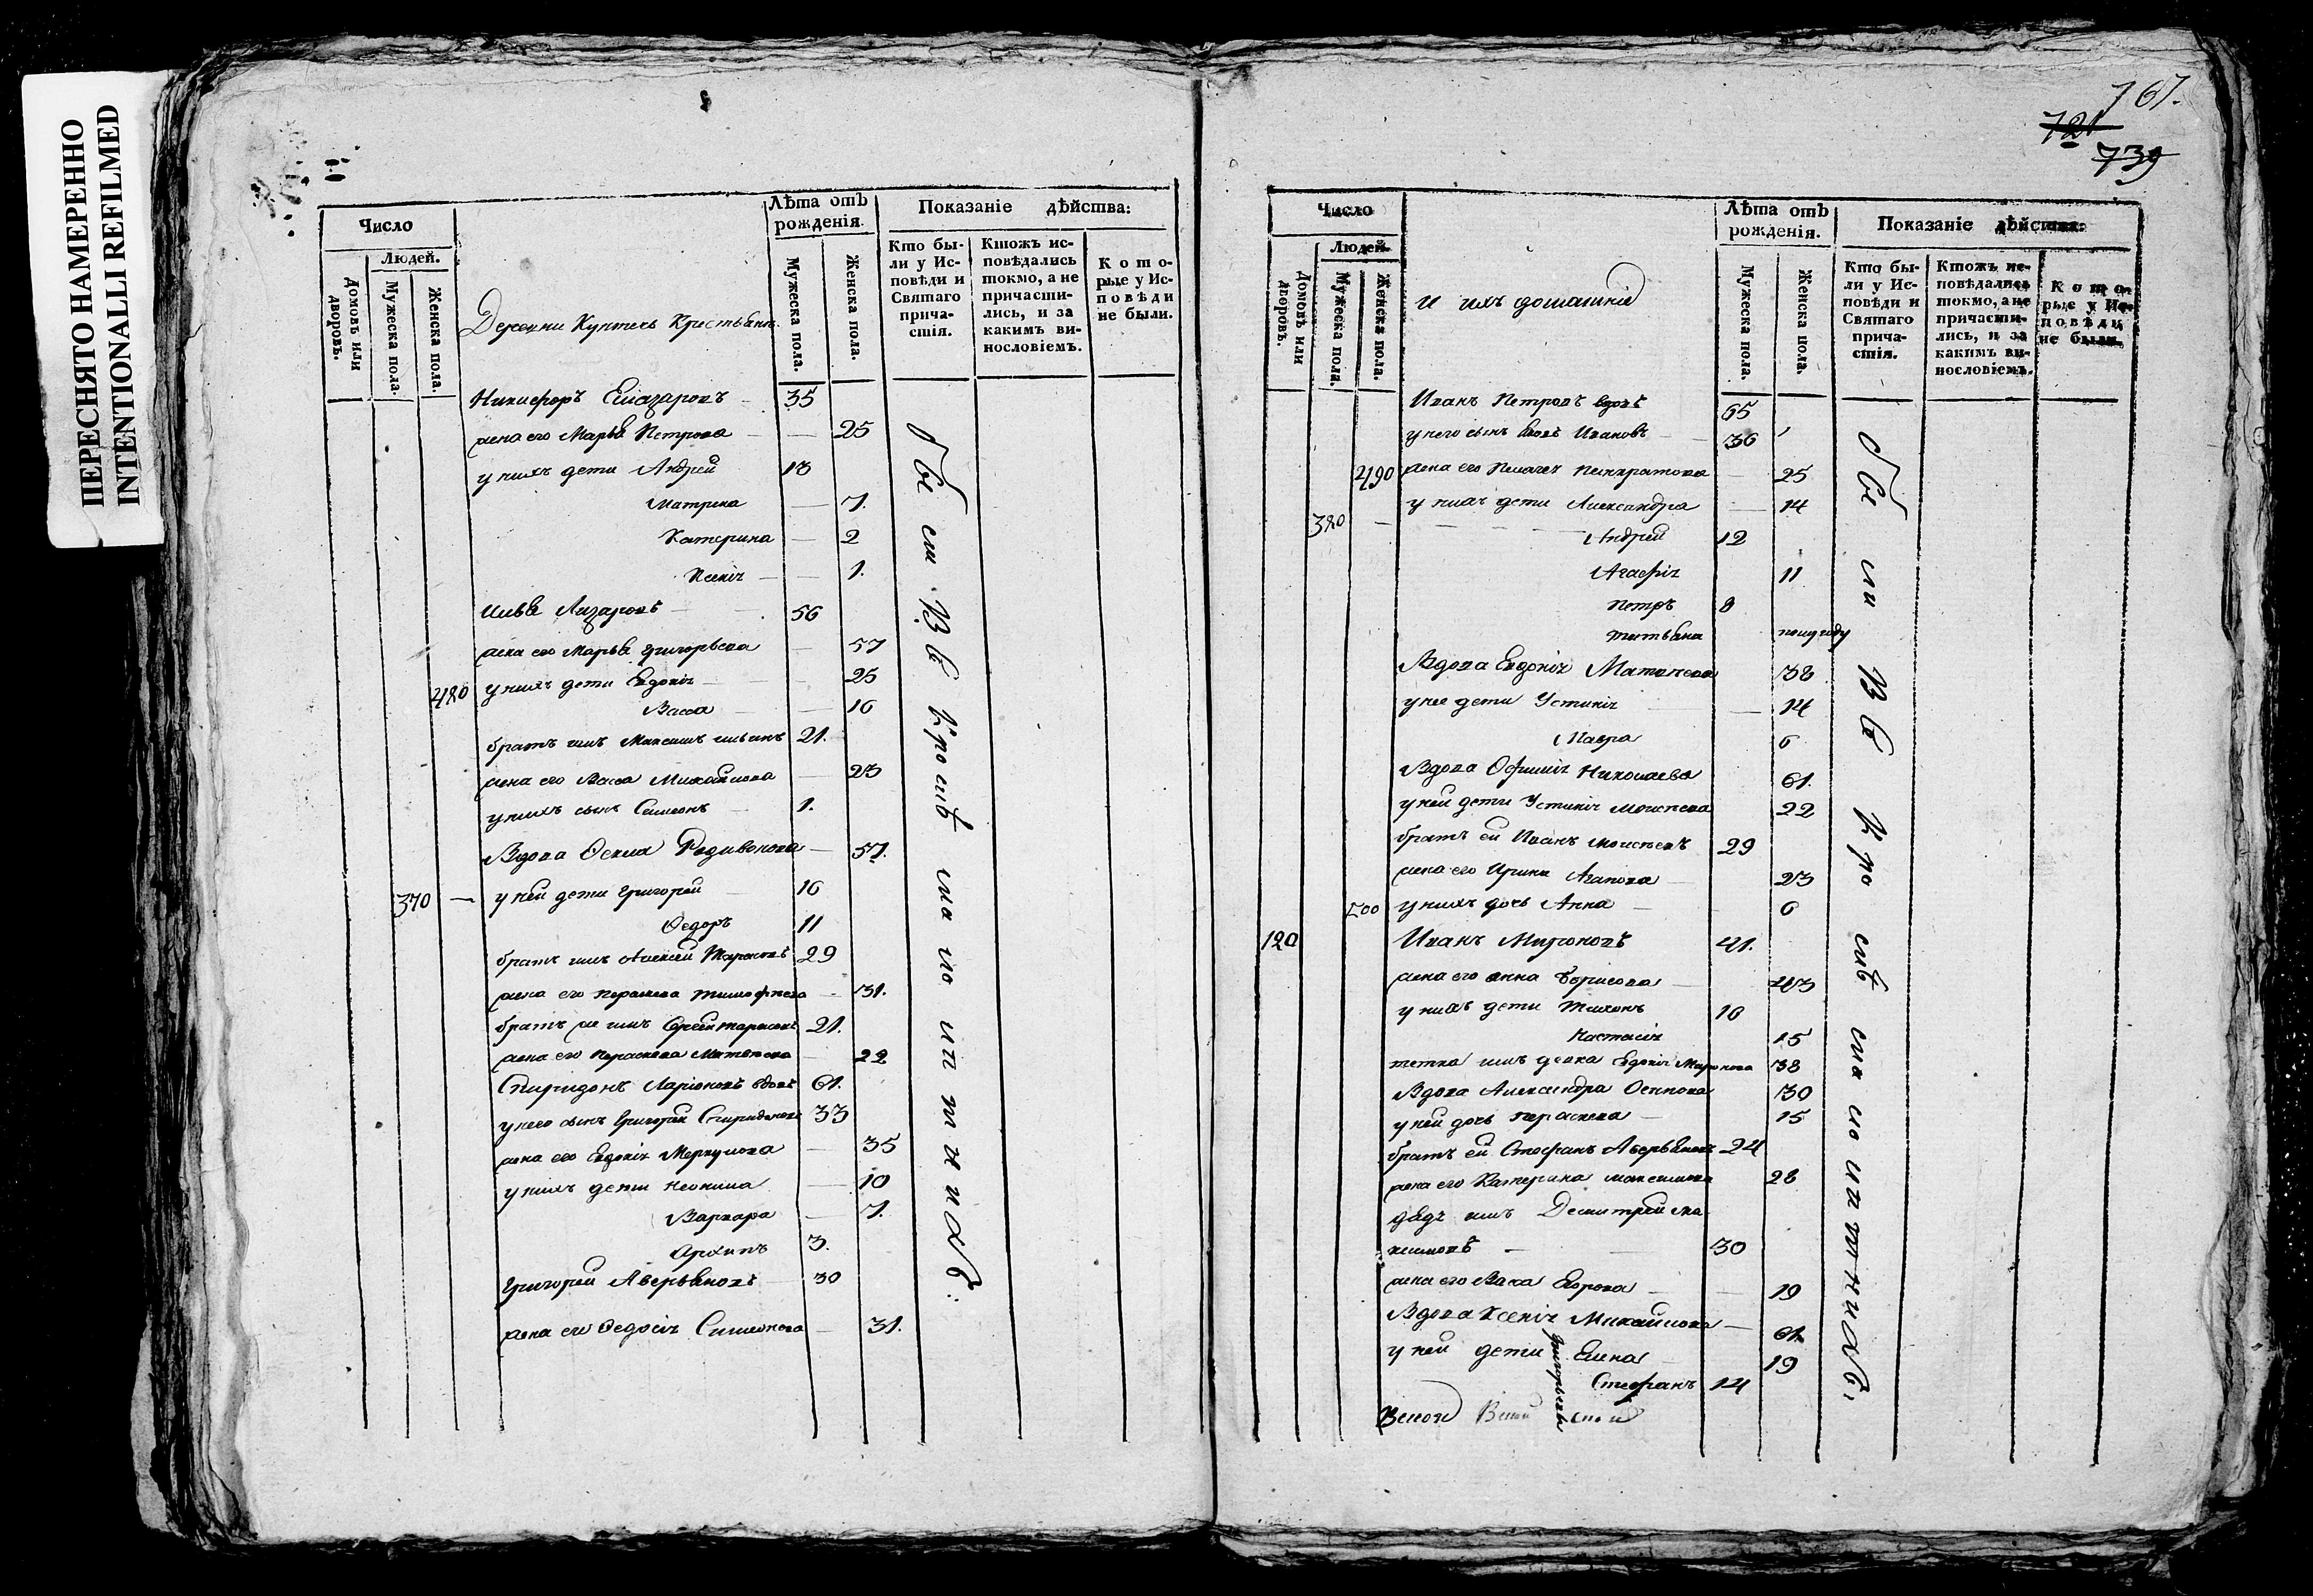 ПЕРЕСНЯТО НАМЕРЕННО
INTENTIONALLI REFILMED
Число
Людей.
Домовъ или дворовъ.
Мужеска пола.
Женска пола.
Лѣта отъ рожденія.
Мужеска пола.
Женска пола.
Показаніе дѣйства:
Кто бы-
ли у Ис-
повѣди и
Святаго
прича-
стія.
Ктожъ ис-
повѣдались
токмо, а не
причасти-
лись, и за
какимъ ви-
нословіемъ.
Кото-
рые у Ис-
повѣди
не были.
Деревни Крестьянъ
Никифоръ Елизаровъ 35
жена его Марья Петрова 25
у нихъ дети Андрей 13
Матрена 7.
Катерина 2
Ксенія 1.
Илья Лазаровъ 56
жена его Марья Григорьева 57
480 у нихъ дети Евдокія 25
Васса 16
братъ имъ Максимъ 21.
жена его Васса Михайлова 23
у нихъ сынъ Симеонъ 1.
Вдова Родивонова 57.
370 у ней дети Григорей 16
Федоръ 11
братъ имъ Алексей Тарасовъ 29
жена его Параскева Тимофеева 31.
братъ же имъ Сергей Тарасовъ 21.
жена его Параскева Матвеева 22
Спиридонъ Ларіоновъ вдовъ 61.
у него сынъ Григорей Спиридоновъ 33
жена его Евдокія Меркулова 35
у нихъ дети Неонила 10
Варвара 7.
Архипъ 3.
Григорей Аверьяновъ 30
жена его Федосія Симеонова 31.
767.
721
739
Число
Людей.
Домовъ или дворовъ.
Мужеска пола.
Женска пола.
Лѣта отъ рожденія.
Мужеска пола.
Женска пола.
Показаніе дѣйства:
Кто бы-
ли у Ис-
повѣди и
Святаго
прича-
стія.
Ктожъ ис-
повѣдались
токмо, а не
причасти-
лись, и за
какимъ ви-
нословіемъ.
Кото-
рые у Ис-
повѣди
не были.
и ихъ домашніе
Иванъ Петровъ вдовъ 65
у него сынъ Ивановъ 36
490 жена его Пелагея Панкратова 25
у нихъ дети Александра 14
380 Андрей 12
Агафія 11
Петръ 8
Татьяна полугоду
Вдова Евдокія Матвеева 38
у нее дети Устинія 14
Мавра 6
Вдова Офимія Николаева 61.
у ней дети Устинія Моисеева 22
братъ ей Иванъ Моисеевъ 29
жена его Ирина Агапова 23
500 у нихъ дочь Анна 6
120 Иванъ Мироновъ 41.
жена его Анна Борисова 43
у нихъ дети Тихонъ 16
Настасія 15
тетка имъ девка Евдокія Миронова 38
Вдова Александра Осипова 30
у ней дочь Параскева 15
братъ ей Стефанъ Аверьяновъ 24
жена его Катерина Максимова 28
дядя имъ Демитрей Ма-
ксимовъ 30
жена его Васса Егорова 19
Вдова Ксенія Михайлова 61.
у ней дети Елена 19
Григорьевы
Стефанъ 14